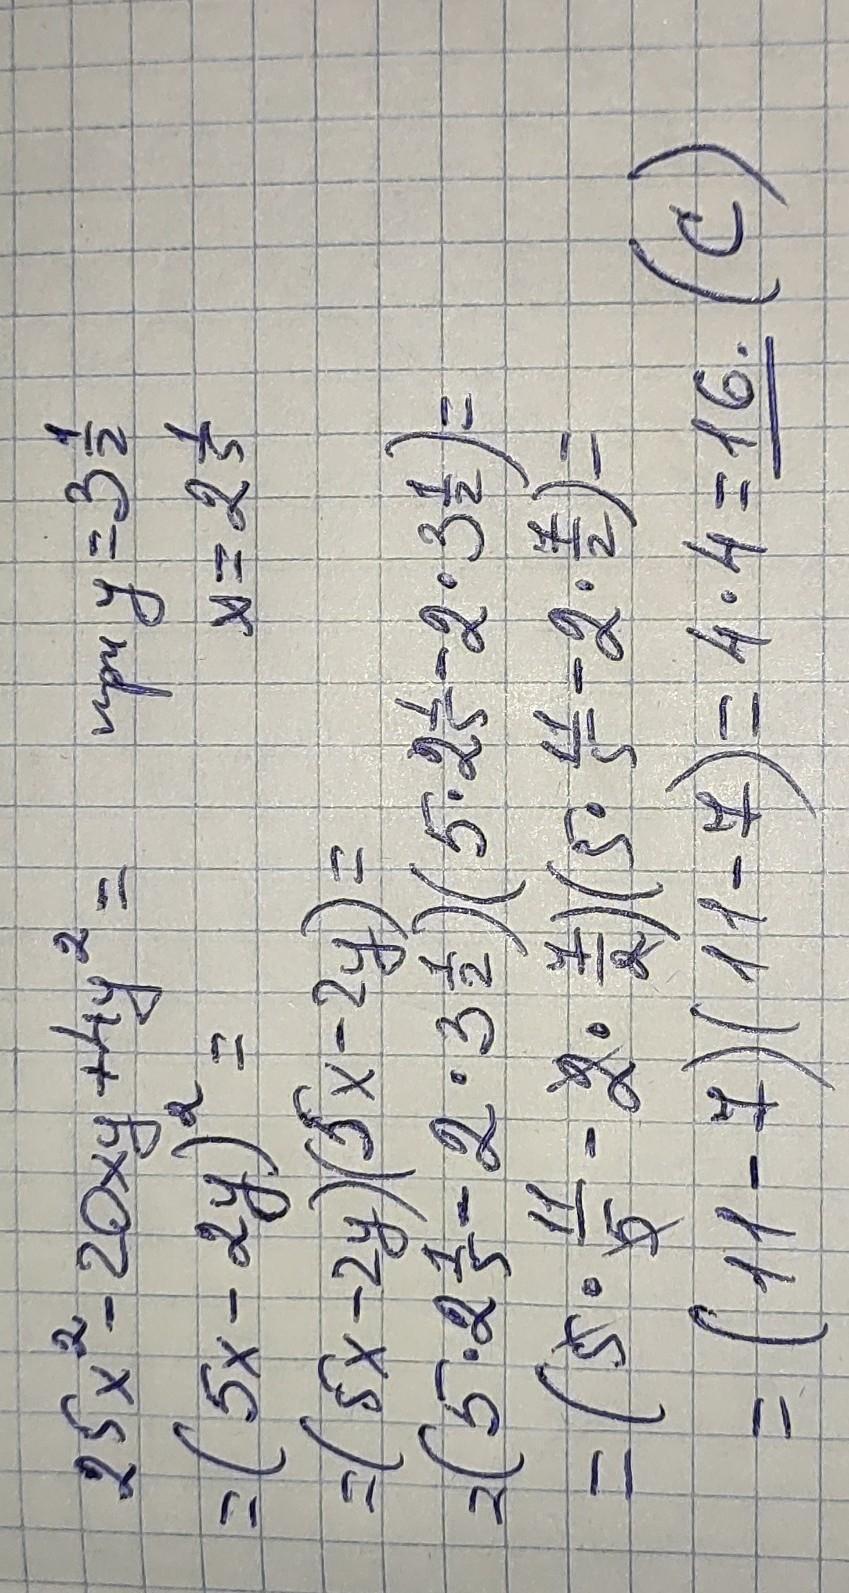 25x² - 20xy + 4y² = при y = 3 1/2
= (5x - 2y)² = x = 2 1/5
= (5x - 2y)(5x - 2y) =
= (5 · 2 1/5 - 2 · 3 1/2)(5 · 2 1/5 - 2 · 3 1/2) =
= (5 · 11/5 - 2 · 7/2)(5 · 11/5 - 2 · 7/2) =
= (11 - 7)(11 - 7) = 4 · 4 = 16. (C)